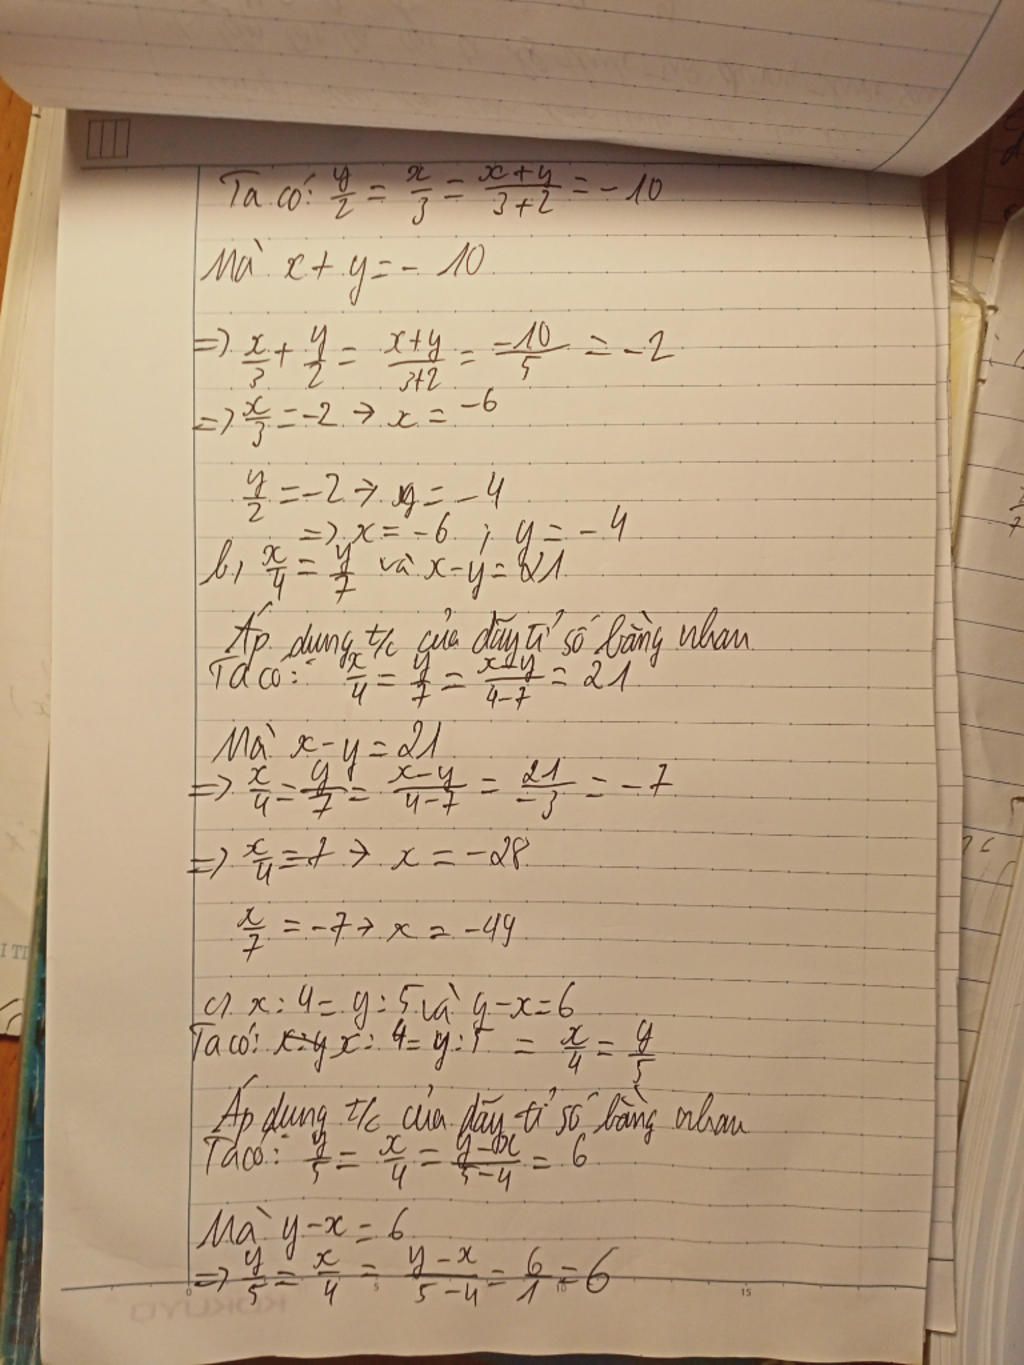 Ta có: y/2 = x/3 = x+y/3+2 = -10
Mà x + y = - 10
=> x/3 + y/2 = x+y/3+2 = -10/5 = -2
=> x/3 = -2 → x = -6
y/2 = -2 → y = -4
=> x = -6 ; y = -4
b, x/4 = y/7 và x-y = 21
Áp dụng t/c của dãy tỉ số bằng nhau
Ta có: x/4 = y/7 = x-y/4-7 = 21
Mà x - y = 21
=> x/4 = y/7 = x-y/4-7 = 21/-3 = -7
=> x/4 = -7 → x = -28
x/7 = -7 → x = -49
c, x : 4 = y : 5 và y - x = 6
Ta có: x : 4 = y : 5 = x/4 = y/5
Áp dụng t/c của dãy tỉ số bằng nhau
Ta có: y/5 = x/4 = y-x/5-4 = 6
Mà y - x = 6
=> y/5 = x/4 = y-x/5-4 = 6/1 = 6
0 5 10 15